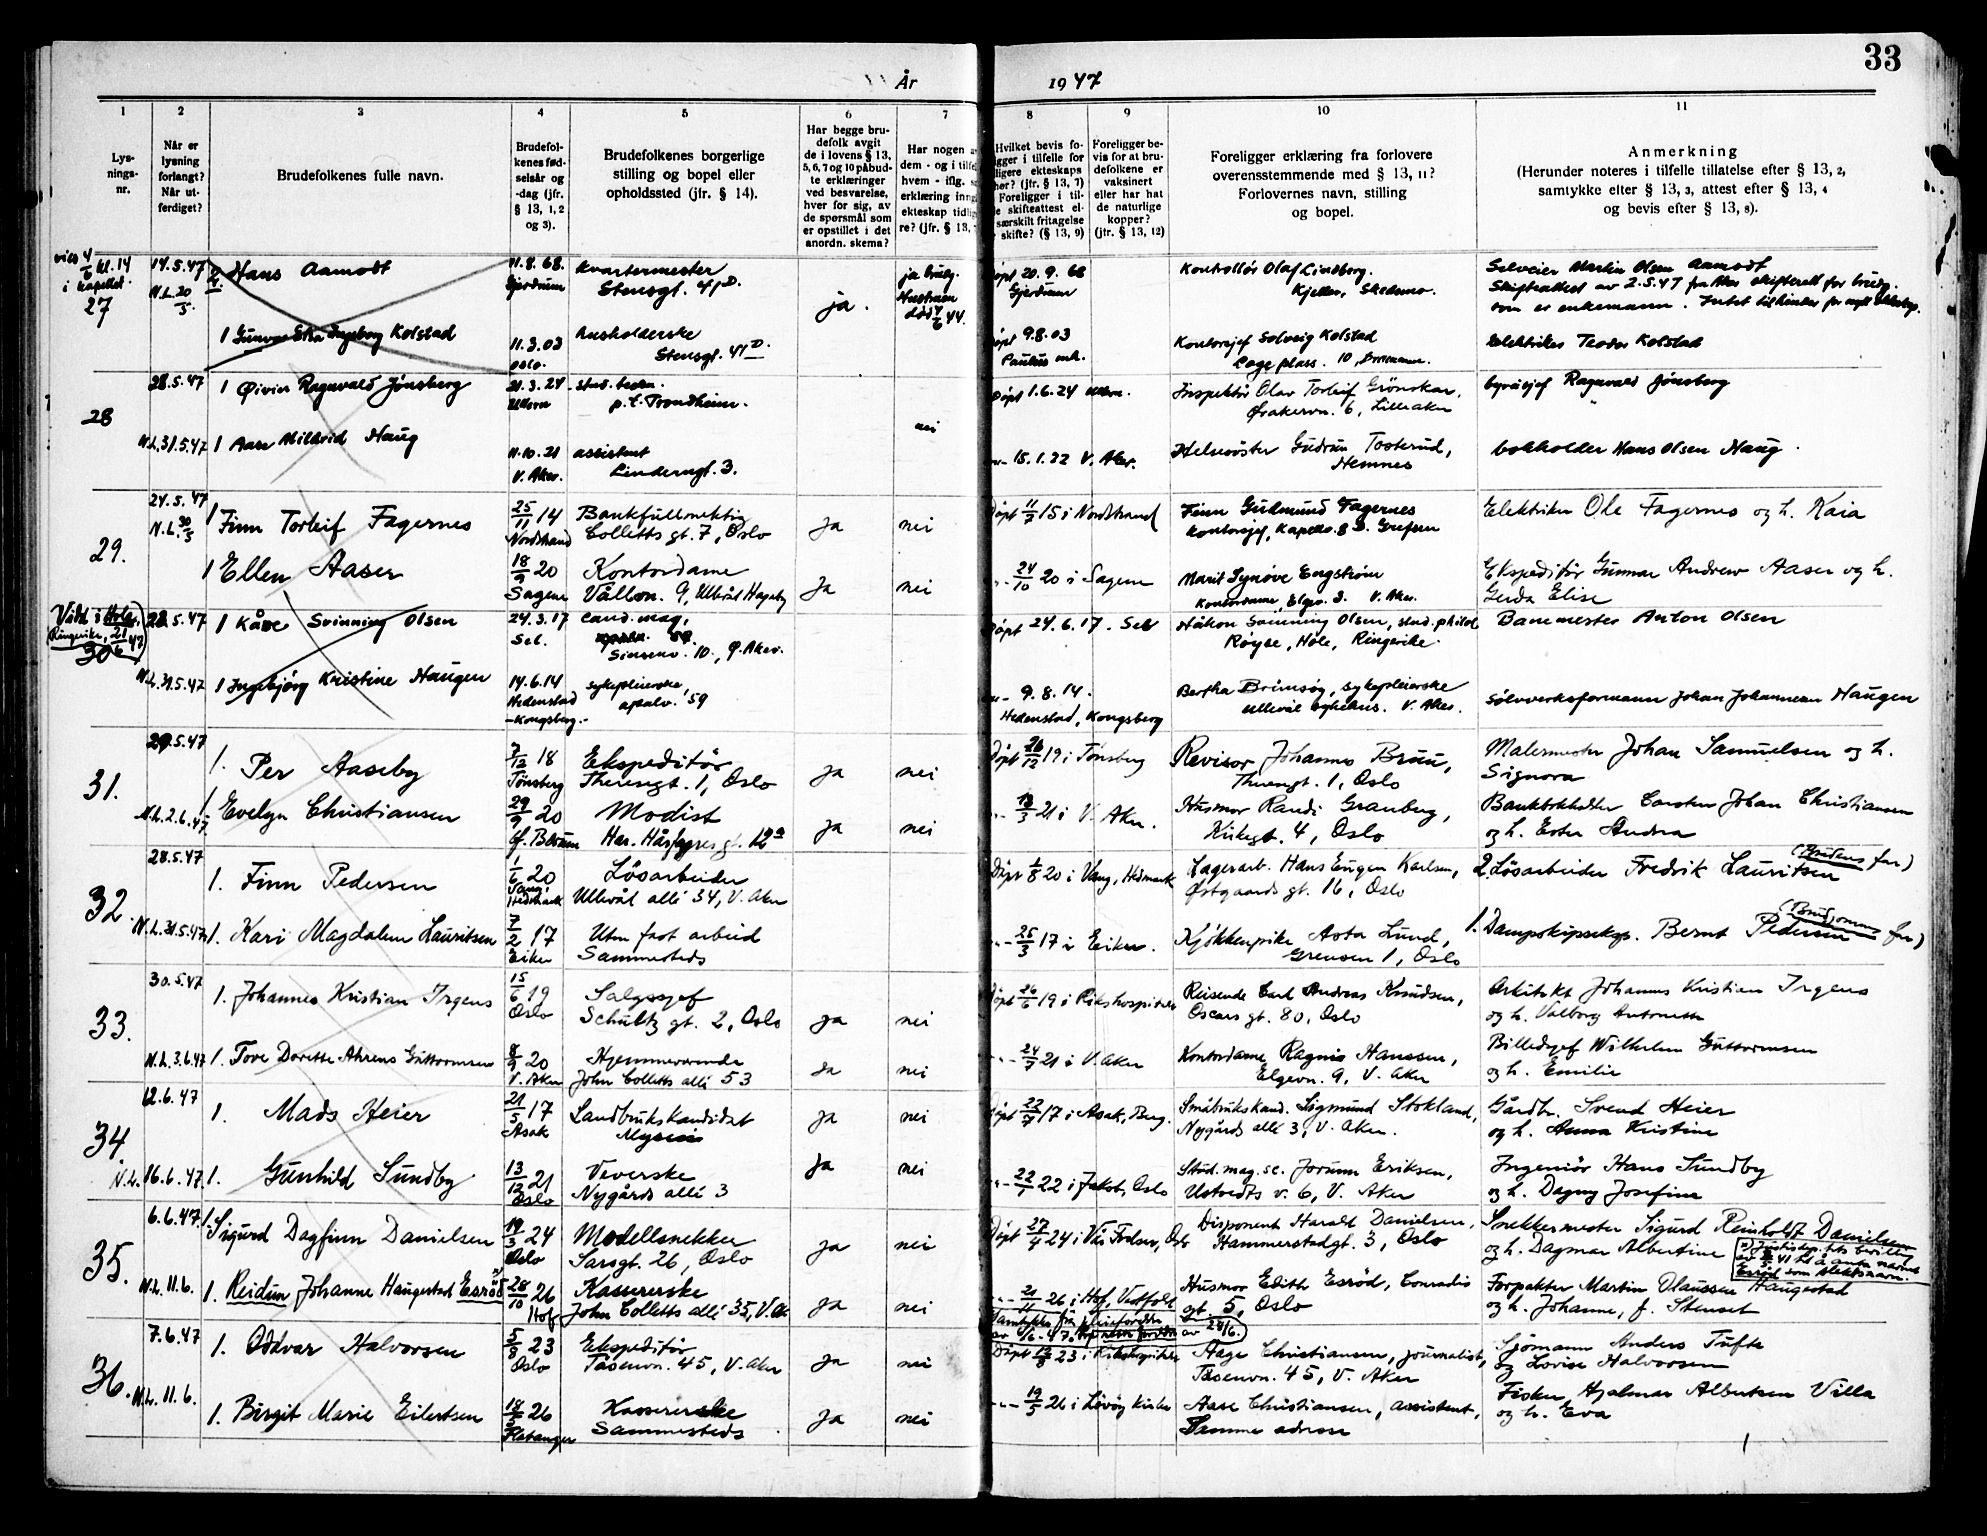 33
År 1947
1 2 3 4 5 6 7 8 9 10 11
Lys-
nings-
nr.
Når er
lysning
forlangt?
Når ut-
ferdiget?
Brudefolkenes fulle navn.
Brudefol-
kenes fød-
selsår og
-dag (jfr.
§ 13, 1, 2
og 3).
Brudefolkenes borgerlige
stilling og bopel eller
opholdssted (jfr. § 14).
Har begge bru-
defolk avgit
de i lovens § 13,
5, 6, 7 og 10 påbud-
te erklæringer
ved besvarelse,
hver for sig, av
de spørsmål som
er opstillet i det
anordn. skema?
Har nogen a
dem - og i tilfe
hvem - iflg.
erklæring inn
ekteskap tidli
re? (jfr. § 13,
Hvilket bevis fo-
gger i tilfelle for
ligere ekteskaps
hør? (jfr. § 13, 7)
Foreligger i til-
e skifteattest el-
særskilt fritagelse
skifte? (§ 13, 9)
Foreligger be-
vis for at bru-
defolkene er
vaksinert
eller har hat
de naturlige
kopper?
(jfr. § 13, 12)
Foreligger erklæring fra forlovere
overensstemmende med § 13, 11?
Forlovernes navn, stilling
og bopel.
Anmerkning
(Herunder noteres i tilfelle tillatelse efter § 13, 2,
samtykke efter § 13, 3, attest efter § 13, 4
og bevis efter § 13, 8).
viet 4/6 kl. 14
i kapellet
27
14.5.47
N.L. 20/5
2 Hans Aamodt
11.8.68.
Gjerdrum
Kvartermester
Stensgt. 41 D.
ja.
ja brudg.
Hustruen
død 4/6 44.
Døpt 20.9.68
Gjerdrum
Kontrollør Olaf Lindborg.
Kjeller, Skedsmo.
Selveier Martin Olsen Aamodt
Skifteattest av 2.5.47 fra Aker skifterett for brudg.
som er enkemann.
1 Gunvor Elsa Ingeborg Kolstad
11.3.03
Oslo.
husholderske
Stensgt. 41 D.
Døpt 9.8.03
Paulus mh.
Kontorsjef Solveig Kolstad
plass. 10, Drammen.
Elektriker Teodor Kolstad
28
28.5.47
1 Øivier Ragnvald Jønsberg
21.3.24
Ullern
stud.
p.t. Trondheim.
Døpt 1.6.24 Ullern.
Inspektør Olav Torleif Grönskar,
Ørakervn. 6, Lilleaker
byråsjef Ragnvald Jønsberg
N.L. 31.5.47
1 Aase Mildrid Haug
11.10.21
V. Aker.
assistent
Linderngt. 3.
nei
15.1.22 V. Aker.
Helsesøster Gudrun Tosterud,
Hemnes
bokholder Hans Olsen Haug.
29.
24.5.47
N.L. 30/5
1 Finn Torleif Fagernes
25/11 14
Nordstrand
Bankfullmektig
Colletts gt. 7, Oslo
ja nei
Døpt 11/7 15 i Nordstrand
Finn Gudmund Fagernes
Kontorsjef, Kapellv. 8 D. Grefsen
Elektriker Ole Fagernes og h. Kaia
1 Ellen Aaser
18/9 20
Sagene
Kontordame
Vållon. 9, Ullevål Hageby
ja nei
24/10 20 i Sagene
Marit Synøve Engstrøm
Kontordame, Elgev. 3. V. Aker.
Ekspeditør Gunnar Andrew Aaser og h.
Gerda Elise
Viet i Hole
Ringerike, 21/6 47
30
28.5.47
1 Kåre Svinning Olsen
24.3.17
Sel.
cand. mag.
Sinsenv. 10, Ø. Aker.
Døpt 24.6.17. Sel
Håkon Svinning Olsen, stud. philol
Røyse, Hole, Ringerike.
Banemester Anton Olsen
N.L. 31.5.47
1 Ingebjørg Kristine Haugen
14.6.14
Hedenstad
-Kongsberg.
sykepleierske,
59
9.8.14.
Hedenstad, Kongsberg
Bertha Brimsøy, sykepleierske
Ullevål sykehus. V. Aker.
Sølvverksformann Johan Johannesen Haugen
31.
29.5.47
1. Per Aaseby
7/12 18
Tønsberg
Ekspeditør
Theresgt. 1, Oslo
ja nei
Døpt 26/12 19 i Tønsberg
Revisor Johannes Bruu,
Theresgt. 1, Oslo
Malermester Johan Samuelsen og h.
Signora
N.L. 2.6.47
1 Evelyn Christiansen
29/9 20
V. Bærum
Modist
Har. Hårfagres gt. 12 a
ja nei
13/3 21 i V. Aker.
Husmor Randi Granberg,
Kirkegt. 4, Oslo
Bankbokholder Carsten Johan Christiansen
og h. Ester Andrea
32.
28.5.47
1. Finn Pedersen
1/6 20
Vang,
Hedmark
Løsarbeider
Ullevål allé 34, V. Aker
Døpt 1/8 20 i Vang, Hedmark
Lagerarb. Hans Eugen Karlsen,
Østgaards gt. 16, Oslo
2. Løsarbeider Fredrik Lauritsen (Brudens far)
N.L. 31.5.47
1. Kari Magdalene Lauritsen
7/2 17
Eiker
Uten fast arbeid
Sammesteds
25/3 17 i Eiker.
Kjøkkenpike Asta Lund,
Grensen 1, Oslo
1. Dampskipseksp. Bernt Pedersen (Brudgommens far)
33.
30.5.47
1. Johannes Kristian Irgens
15/6 19
Oslo
Salgssjef
Schultz gt. 2, Oslo
ja nei
Døpt 26/6 19 i Rikshospitalet
Reisende Carl Andreas Knudsen,
Oscars gt. 80, Oslo
Arkitekt Johannes Kristian Irgens
og h. Valborg Antonette
N.L. 3.6.47
1. Tove Dorette Ahrens Guttormsen
8/9 20
V. Aker
Hjemmeværende
John Colletts allé 53
ja nei
24/7 21 i V. Aker
Kontordame Ragnis Hanssen,
Elgevn. 9, V. Aker
Billedsjef Wilhelm Guttormsen
og h. Emilie
34
12.6.47
1. Mads Heier
21/5 17
Asak
Landbrukskandidat
Mysen
ja nei
Døpt 22/7 17 i Asak, Berg.
Småbrukskand. Sigmund Stokland,
Nygårds allé 3, V. Aker.
Gårdbr. Svend Heier
og h. Anna Kristine
N.L. 16.6.47
1. Gunhild Sundby
13/12 21
Oslo
Veverske
Nygårds allé 3
ja nei
22/1 22 i Jakob, Oslo
Stud. mag. sc. Jorunn Eriksen,
Ustvedts v. 6, V. Aker
Ingeniør Hans Sundby
og h. Dagny Josefine
35.
6.6.47
1. Sigurd Dagfinn Danielsen
19/3 24
Oslo
Modellsnekker
Sarsgt. 26, Oslo
ja nei
Døpt 27/4 24 i Vår Frelser, Oslo
Disponent Harald Danielsen,
Hammerstadgt. 3, Oslo
Snekkermester Sigurd Reinholdt Danielsen
og h. Dagmar Albertine
N.L. 11.6.
1. Reidun Johanne Haugestad Esrød
28/10 26
Hof
Kassererske
John Colletts allé 35, V. Ak
ja nei
21/11 26 i Hof, Vestfold
Husmor Edith Esrød, Conradis
gt. 5, Oslo
Forpakter Martin Olaussen Haugestad
og h. Johanne, f. Stenset
Esrød som slektsnavn.
av 28/6.
36.
7.6.47
1. Oddvar Halvorsen
5/8 23
Oslo
Ekspeditør
Tåsenvn. 45, V. Aker
ja nei
Døpt 12/8 23 i Rikshospitalet
Aage Christiansen, journalist,
Tåsenvn. 45, V. Aker
Sjømann Anders Tufte
og Lovise Halvorsen
N.L. 11.6.
1. Birgit Marie Eilertsen
18/2 26
Flatanger
Kassererske
Sammesteds
ja nei
19/5 26 i Løvøy kirke
Aase Christiansen, assistent,
Samme adresse
Fisker Hjalmar Albertsen Villa
og h. Eva